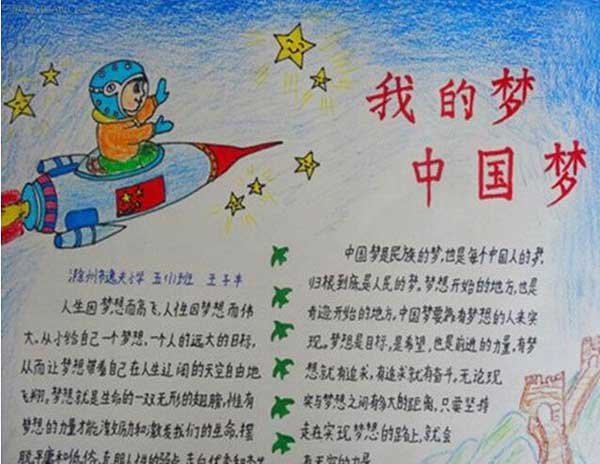 我的梦
中国梦
滁州市逸夫小学 五(1)班 王子丰
人生因梦想而高飞,人性因梦想而伟
大。从小给自己一个梦想,一个人的远大的目标,
从而让梦想带着自己在人生辽阔的天空自由地
飞翔。梦想就是生命的一双无形的翅膀,惟有
梦想的力量才能激励和激发我们的生命,摆
脱平庸和低俗,克服人性的弱点,走向优秀和杰
中国梦是民族的梦,也是每个中国人的梦,
归根到底是人民的梦。梦想开始的地方,也是
奇迹开始的地方,中国梦要靠有梦想的人来实
现。梦想是目标,是希望,也是前进的力量,有梦
想就有追求,有追求就有奋斗。无论现
实与梦想之间有多大的距离,只要坚持
走在实现梦想的路上,就会
有无穷的力量